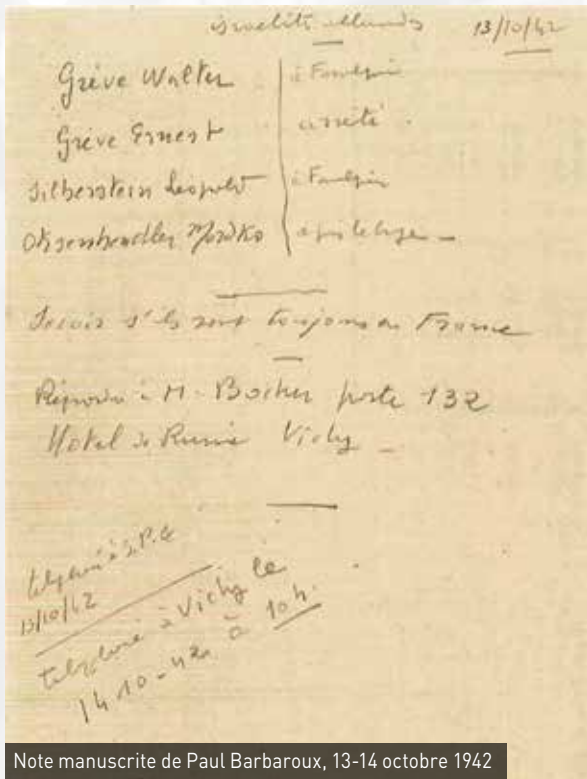 israélites allemands 13/10/42
Grève Walter à Faulquin
Grève Ernest arrêté.
Silberstein Léopold à Faulquin
Ohsenhendler Mordko
Savoir s'ils sont toujours en France
Répondre à M. Bocher poste 132
Hotel de Russie Vichy
téléphoné à S.P.
13/10/42
téléphoné à Vichy le
14-10-42 à 10h.
Note manuscrite de Paul Barbaroux, 13-14 octobre 1942